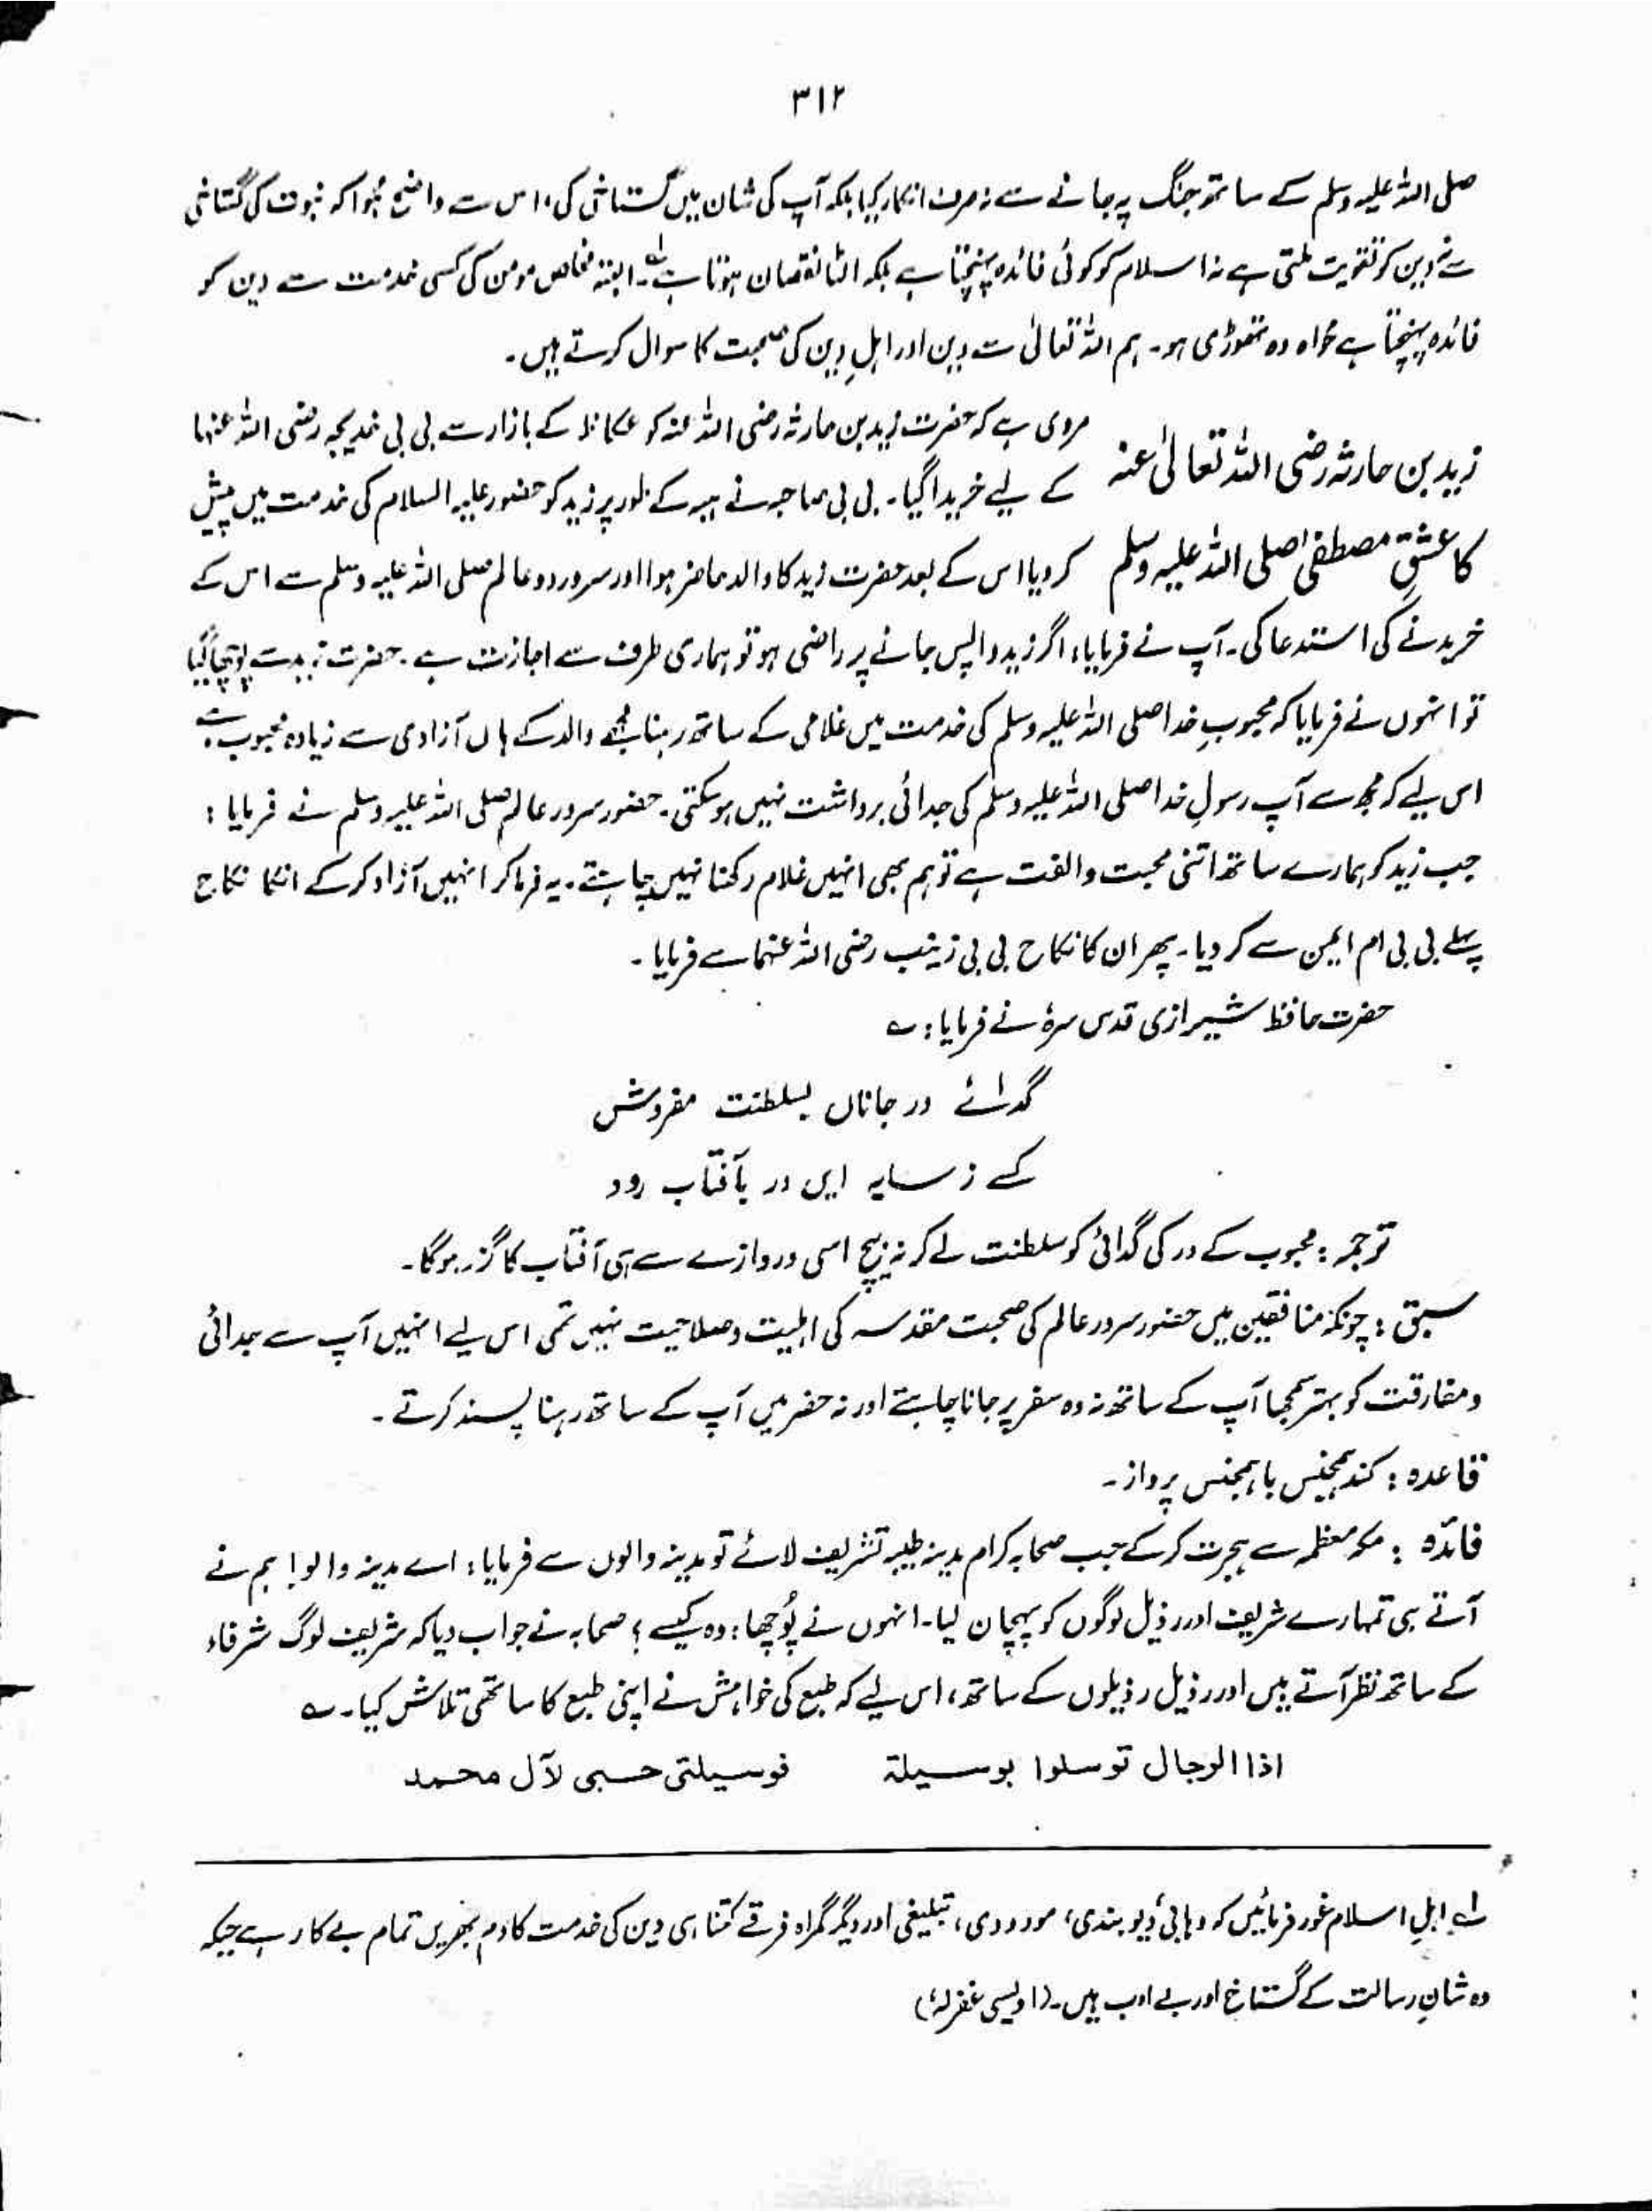 ۳۱۲
صلی اللہ علیہ وسلم کے ساتھ جنگ پہ جانے سے نہ صرف انکار کیا بلکہ آپ کی شان میں گستاخی کی، اس سے واضح ہُوا کہ نبوت کی گستاخی
سے نہ دین کو تقویت ملتی ہے نہ اسلام کو کوئی فائدہ پہنچتا ہے بلکہ الٹا نقصان ہوتا ہے۔ البتہ مخلص مومن کی کسی خدمت سے دین کو
فائدہ پہنچتا ہے خواہ وہ تھوڑی ہو۔ ہم اللہ تعالیٰ سے دین اور اہلِ دین کی صحبت کا سوال کرتے ہیں۔
زید بن حارثہ رضی اللہ تعالیٰ عنہ
کا عشقِ مصطفیٰ صلی اللہ علیہ وسلم
مروی ہے کہ حضرت زید بن حارثہ رضی اللہ عنہ کو عکاظ کے بازار سے بی بی خدیجہ رضی اللہ عنہا
کے لیے خریدا گیا۔ بی بی صاحبہ نے ہبہ کے طور پر زید کو حضور علیہ السلام کی خدمت میں پیش
کر دیا اس کے بعد حضرت زید کا والد حاضر ہوا اور سرور دو عالم صلی اللہ علیہ وسلم سے اس کے
خریدنے کی استدعا کی۔ آپ نے فرمایا، اگر زید واپس جانے پر راضی ہو تو ہماری طرف سے اجازت ہے۔ حضرت زید سے پوچھا گیا
تو انہوں نے فرمایا کہ محبوبِ خدا صلی اللہ علیہ وسلم کی خدمت میں غلامی کے ساتھ رہنا مجھے والد کے ہاں آزادی سے زیادہ محبوب ہے
اس لیے کہ مجھ سے آپ رسولِ خدا صلی اللہ علیہ وسلم کی جدائی برداشت نہیں ہو سکتی۔ حضور سرور عالم صلی اللہ علیہ وسلم نے فرمایا :
جب زید کو ہمارے ساتھ اتنی محبت و الفت ہے تو ہم بھی انہیں غلام رکھنا نہیں چاہتے۔ یہ فرما کر انہیں آزاد کر کے انکا نکاح
پہلے بی بی ام ایمن سے کر دیا۔ پھر ان کا نکاح بی بی زینب رضی اللہ عنہما سے فرمایا ۔
حضرت حافظ شیرازی قدس سرہٗ نے فرمایا : ؎
گدائے در جاناں بسلطنت مفروش
کسے ز سایہ ایں در بآفتاب رود
ترجمہ : محبوب کے در کی گدائی کو سلطنت لے کر نہ بیچ اسی دروازے سے ہی آفتاب کا گزر ہو گا۔
سبق : چونکہ منافقین میں حضور سرور عالم کی صحبت مقدسہ کی اہلیت و صلاحیت نہیں تھی اس لیے انہیں آپ سے جدائی
و مفارقت کو بہتر سمجھا آپ کے ساتھ نہ وہ سفر پر جانا چاہتے اور نہ حضر میں آپ کے ساتھ رہنا پسند کرتے ۔
قاعدہ : کند ہمجنس با ہمجنس پرواز ۔
فائدہ : مکہ معظمہ سے ہجرت کر کے جب صحابہ کرام مدینہ طیبہ تشریف لائے تو مدینہ والوں سے فرمایا : اے مدینہ والو! ہم نے
آتے ہی تمہارے شریف اور رذیل لوگوں کو پہچان لیا۔ انہوں نے پُوچھا : وہ کیسے ؟ صحابہ نے جواب دیا کہ شریف لوگ شرفاء
کے ساتھ نظر آتے ہیں اور رذیل رذیلوں کے ساتھ، اس لیے کہ طبع کی خواہش نے اپنی طبع کا ساتھی تلاش کیا۔ ؎
اذا الرجال توسلوا بوسیلۃ فوسیلتی حسبی لآل محمد
لہ اہلِ اسلام غور فرمائیں کہ وہابی، دیوبندی، مودودی، تبلیغی اور دیگر گمراہ فرقے کتنا ہی دین کی خدمت کا دم بھریں تمام بے کار ہے جبکہ
وہ شانِ رسالت کے گستاخ اور بے ادب ہیں۔ (اویسی غفرلہٗ)